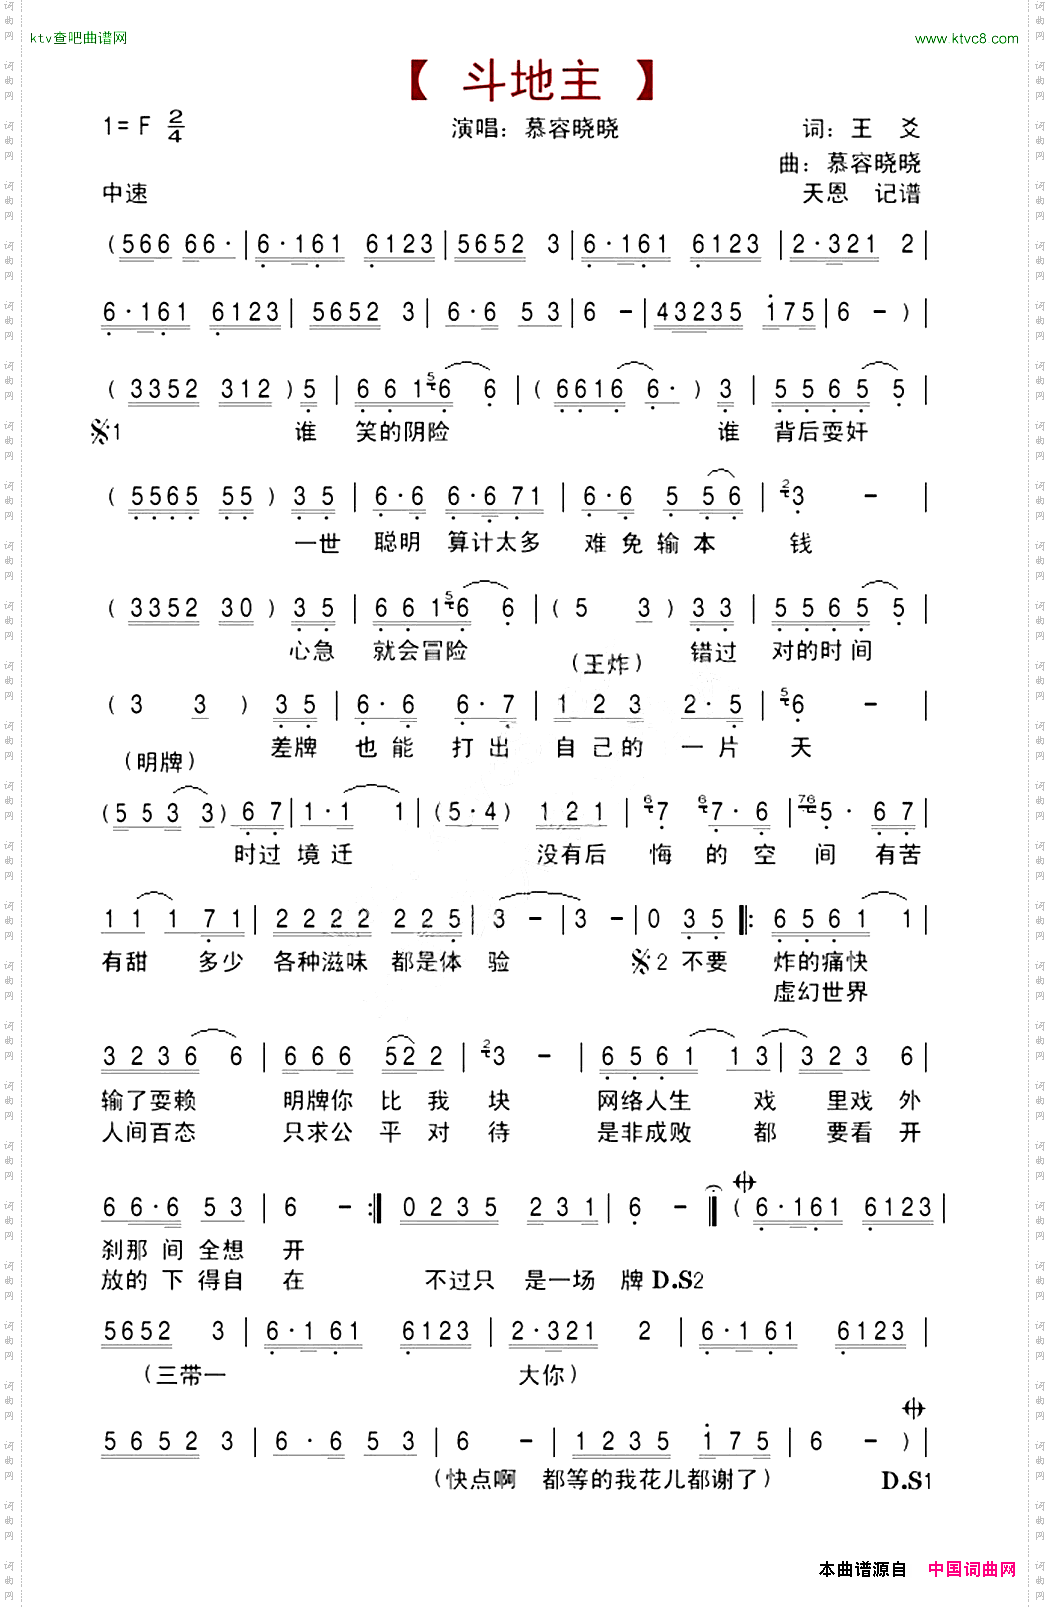 ktv查吧曲谱网 www.ktvc8.com
【 斗地主 】
1=F 2/4 演唱：慕容晓晓 词：王 爻
曲：慕容晓晓
中速 天恩 记谱
(566 66·|6·161 6123|5652 3|6·161 6123|2·321 2|
6·161 6123|5652 3|6·6 53|6 -|43235 175|6 -)|
(3352 312)5|6 6 1 5 6 6|(6616 6·)3|5 5 6 5 5|
𝄋1 谁 笑的阴险 谁 背后耍奸
(5565 55)3 5|6·6 6·6 71|6·6 5 56|2 3 -|
一世 聪明 算计太多 难免输本 钱
(3352 30)3 5|6 6 1 5 6 6|(5 3)3 3|5 5 6 5 5|
心急 就会冒险 (王炸) 错过 对的时间
(3 3)3 5|6·6 6·7|1 2 3 2·5|5 6 -|
(明牌) 差牌 也能 打出 自己的 一片 天
(5 5 3 3)6 7|1·1 1|(5·4) 1 2 1|6 7 6 7·6|76 5· 6 7|
时过 境迁 没有后 悔的空 间 有苦
1 1 1 7 1|2 2 2 2 2 2 5|3 -|3 -|0 3 5‖:6 5 6 1 1|
有甜 多少 各种滋味 都是体 验 𝄋2 不要 炸的痛快
虚幻世界
3 2 3 6 6|6 6 6 52 2|2 3 -|6 5 6 1 1 3|3 2 3 6|
输了耍赖 明牌你 比我 块 网络人生 戏 里戏外
人间百态 只求公 平对 待 是非成败 都 要看开
6 6·6 5 3|6 -:‖0 2 3 5 2 3 1|6 -‖(6·161 6123|
刹那间全想 开
放的下得自 在 不过只 是一场 牌 D.S2
5652 3|6·1 61 6123|2·321 2|6·1 61 6123|
(三带一 大你)
5652 3|6·6 53|6 -|1235 175|6 -)|
(快点啊 都等的我花儿都谢了) D.S1
本曲谱源自 中国词曲网